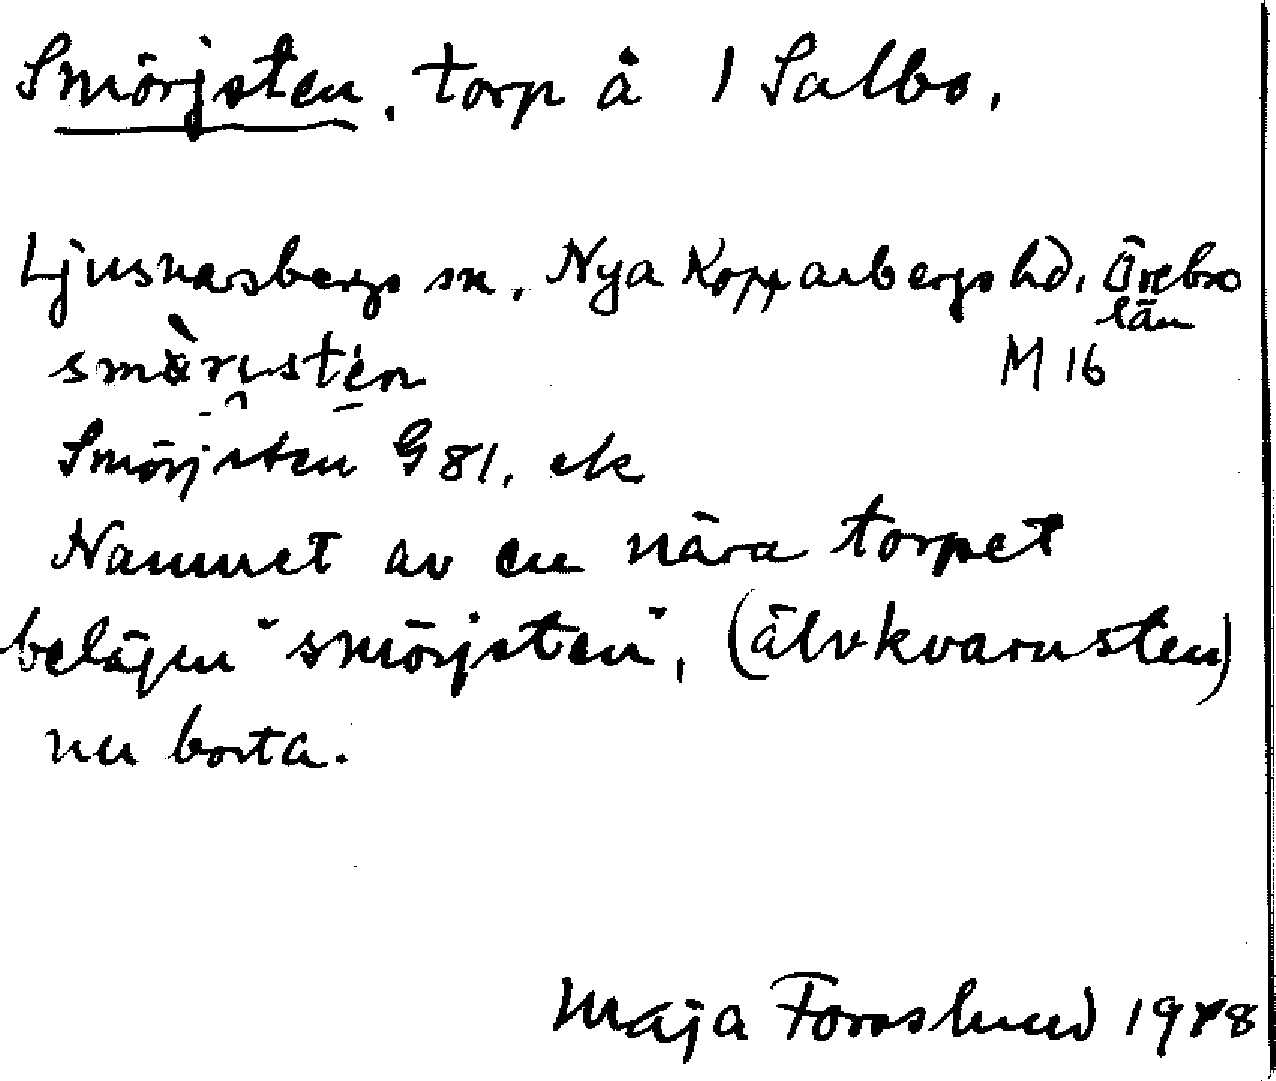 Smörjsten, torp å 1 Salbo.
Ljusnarsbergs sn. Nya Kopparbergs hd. Örebro
län
M 16
Smörjsten G 81, ek
Namnet av en nära torpet
belägen "smörjsten", (älvkvarnsten)
nu borta.
Maja Forsslund 1948